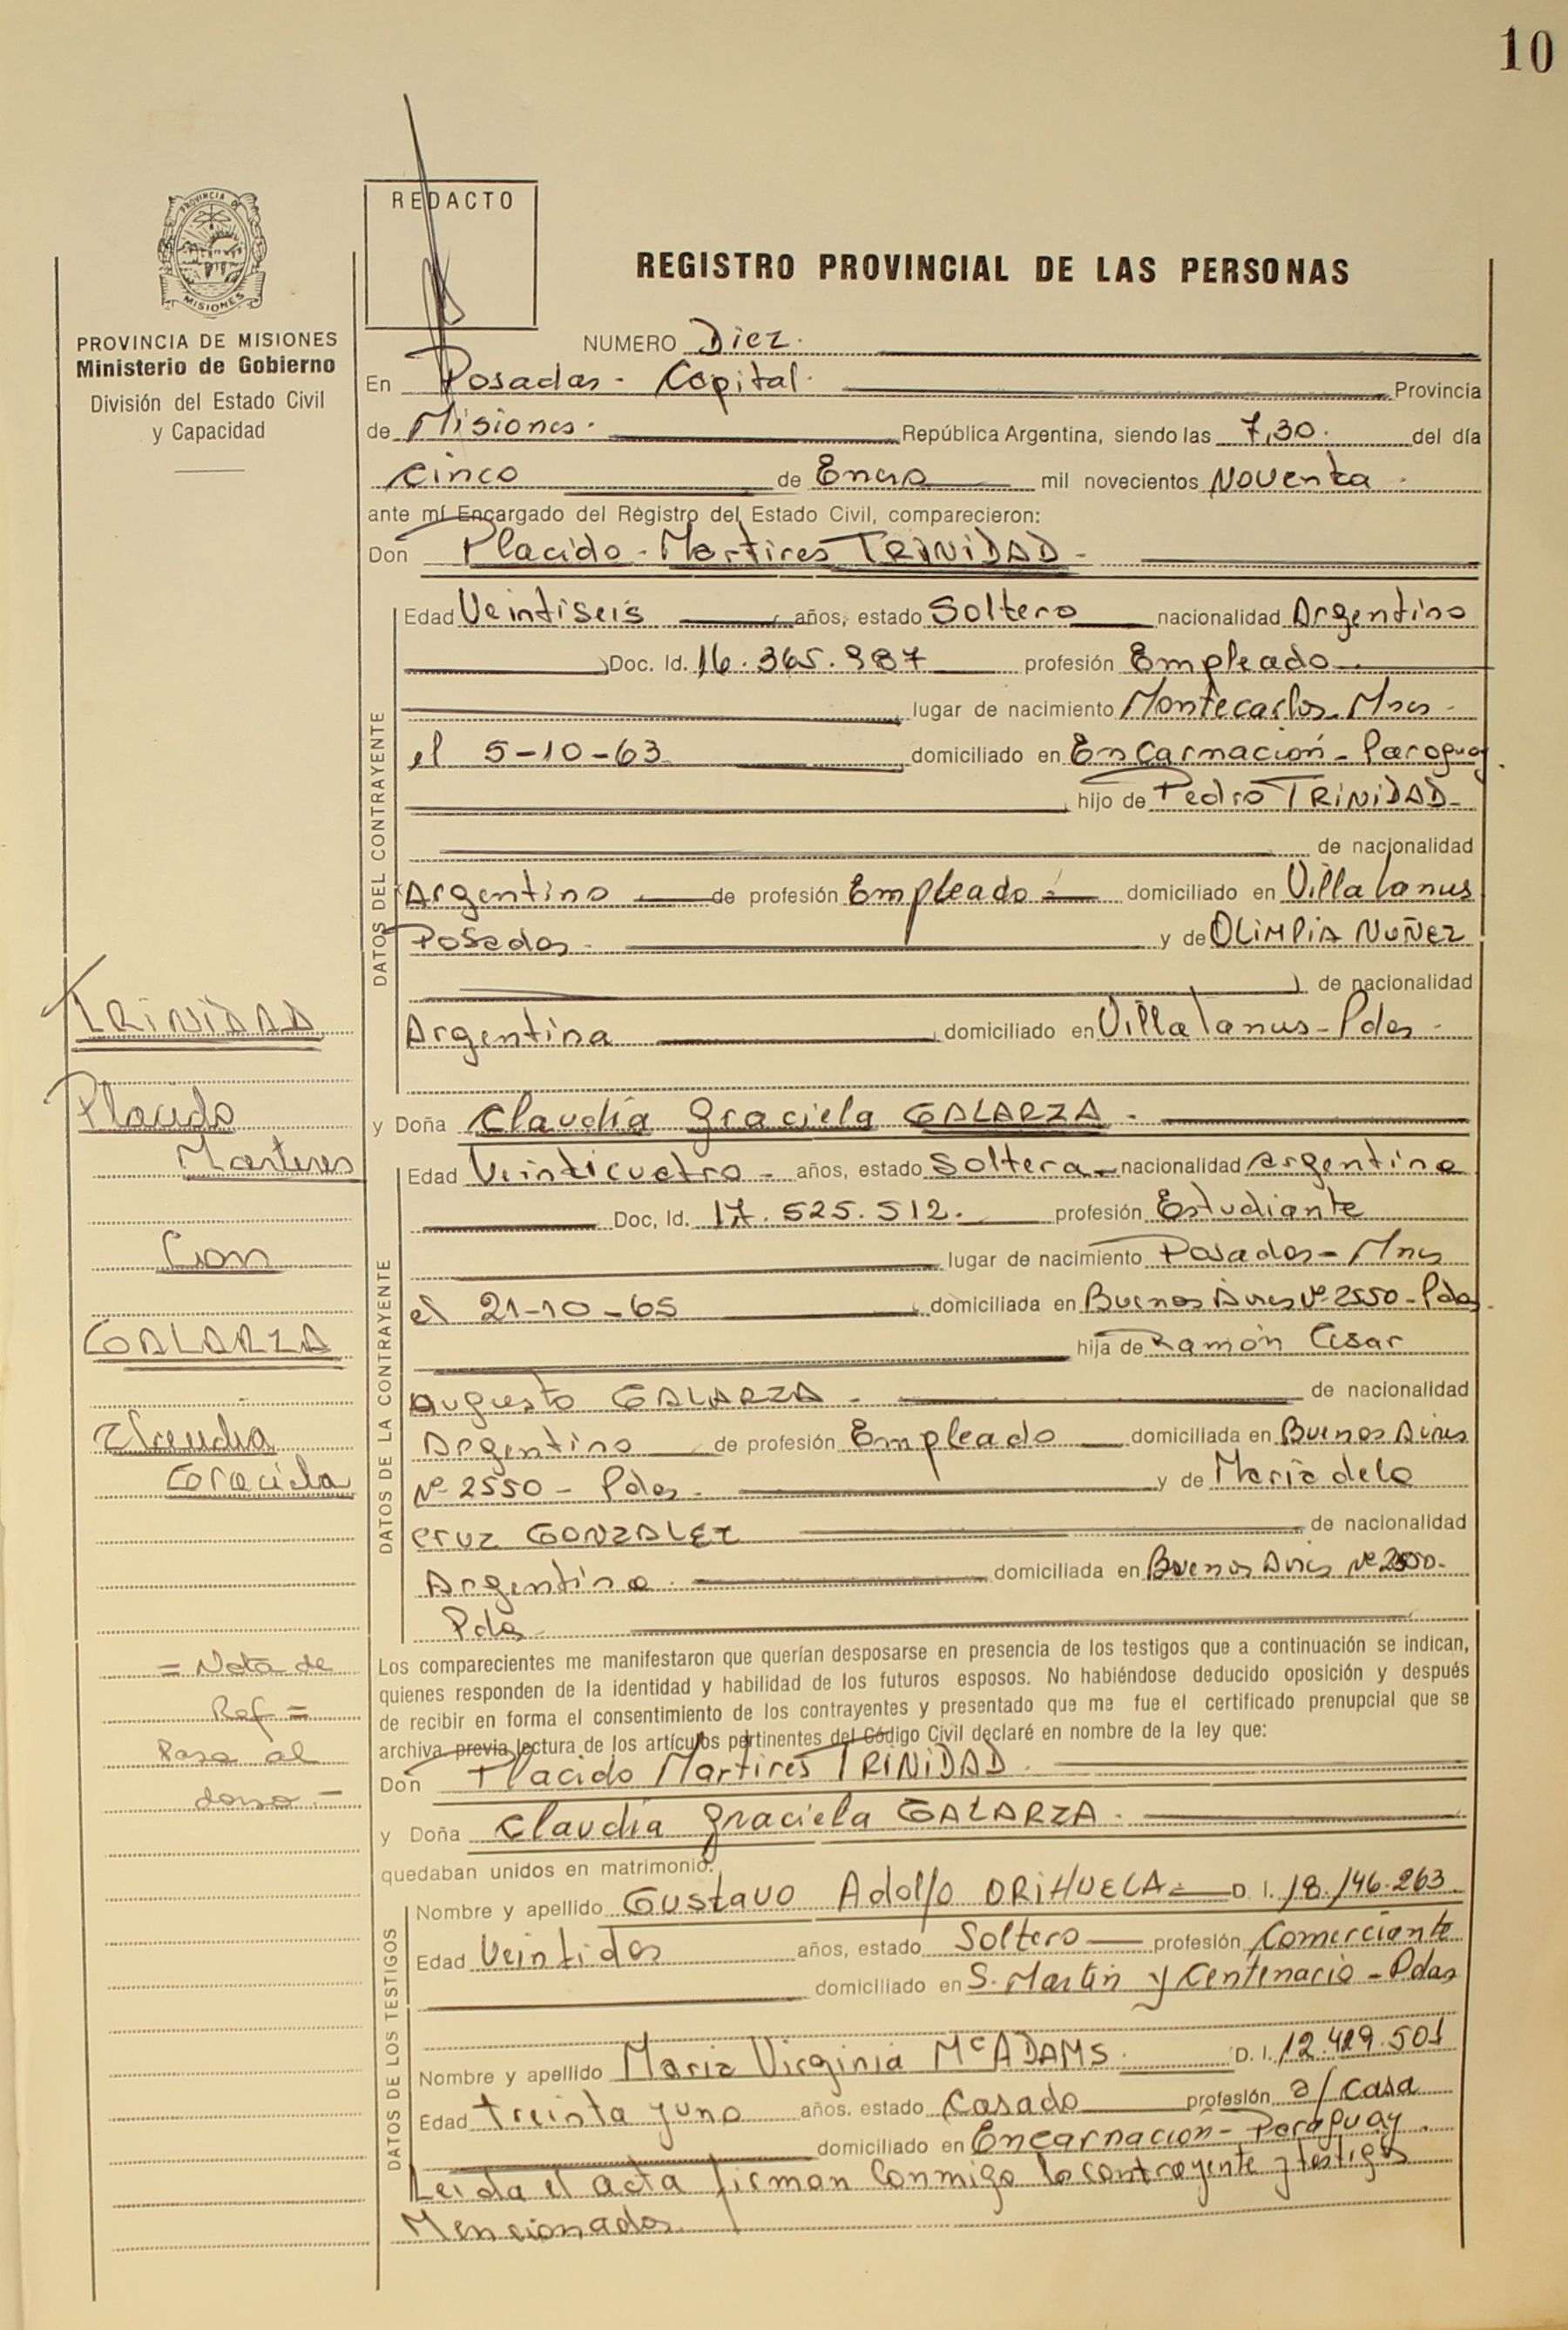 10
REDACTO
PROVINCIA DE
MISIONES
REGISTRO PROVINCIAL DE LAS PERSONAS
PROVINCIA DE MISIONES
Ministerio de Gobierno
División del Estado Civil
y Capacidad
NUMERO Diez.
En Posadas - Capital. Provincia
de Misiones. República Argentina, siendo las 7,30. del día
cinco de Enero mil novecientos Noventa.
ante mí Encargado del Registro del Estado Civil, comparecieron:
Don Placido - Martires TRINIDAD -
DATOS DEL CONTRAYENTE
Edad Veintiseis años, estado Soltero nacionalidad Argentino
Doc. Id. 16.365.987 profesión Empleado
lugar de nacimiento Montecarlos - Mnes -
el 5-10-63 domiciliado en Encarnación - Paraguay.
hijo de Pedro TRINIDAD -
de nacionalidad
Argentino de profesión Empleado domiciliado en Villa Lanus
Posadas - y de OLIMPIA NUÑEZ
de nacionalidad
Argentina domiciliado en Villa Lanus - Pdas -
y Doña Claudia Graciela GALARZA -
DATOS DE LA CONTRAYENTE
Edad Veinticuatro - años, estado Soltera - nacionalidad argentina
Doc, Id. 17.525.512. profesión Estudiante
lugar de nacimiento Posadas - Mnes
el 21-10-65 domiciliada en Buenos Aires Nº 2550 - Pdas.
hija de Ramón Cesar
Augusto GALARZA - de nacionalidad
Argentino de profesión Empleado domiciliada en Buenos Aires
Nº 2550 - Pdas - y de Maria de la
cruz GONZALEZ de nacionalidad
Argentina. domiciliada en Buenos Aires Nº 2550-
Pdas
Los comparecientes me manifestaron que querían desposarse en presencia de los testigos que a continuación se indican,
quienes responden de la identidad y habilidad de los futuros esposos. No habiéndose deducido oposición y después
de recibir en forma el consentimiento de los contrayentes y presentado que me fue el certificado prenupcial que se
archiva previa lectura de los artículos pertinentes del Código Civil declaré en nombre de la ley que:
Don Placido Martires TRINIDAD.
y Doña Claudia Graciela GALARZA -
quedaban unidos en matrimonio.
DATOS DE LOS TESTIGOS
Nombre y apellido Gustavo Adolfo ORIHUELA - D. I. 18.146.263.
Edad Veintidos años, estado Soltero profesión Comerciante
domiciliado en S. Martin y Centenario - Pdas
Nombre y apellido Maria Virginia Mc ADAMS. D. I. 12.429.501
Edad treinta y uno años. estado Casado profesión a/ casa
domiciliado en Encarnación - Paraguay.
Leida el acta firman conmigo los contrayente y testigos
Mencionados.
TRINIDAD
Placido
Martires
Con
GALARZA
Claudia
Graciela
= Nota de
Ref =
Pasa al
dorso. -